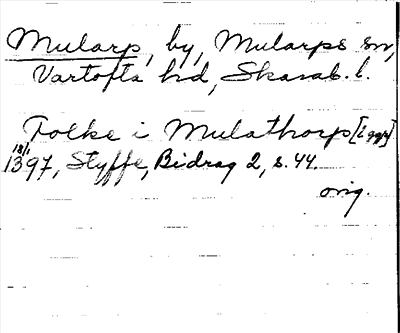 Mularp, by, Mularps sn,
Vartofta hd, Skarab. l.
Folke i Mulathorp
18/1
1397, Styffe, Bidrag 2, s. 44.
orig.